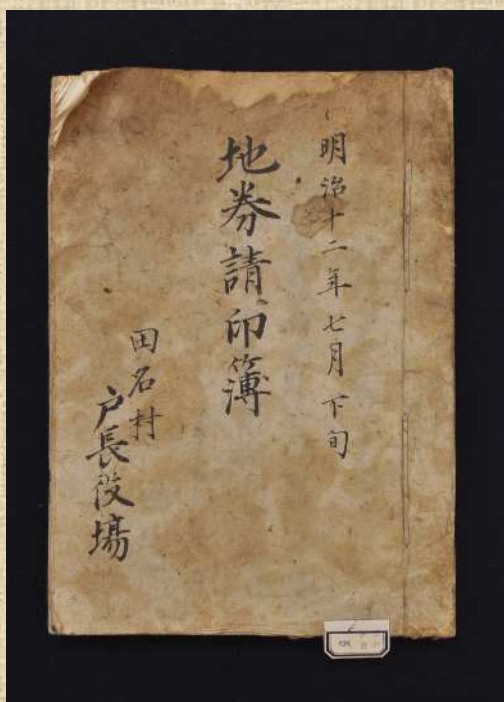 明治十二年七月下旬
地券請印簿
田名村
戸長役場